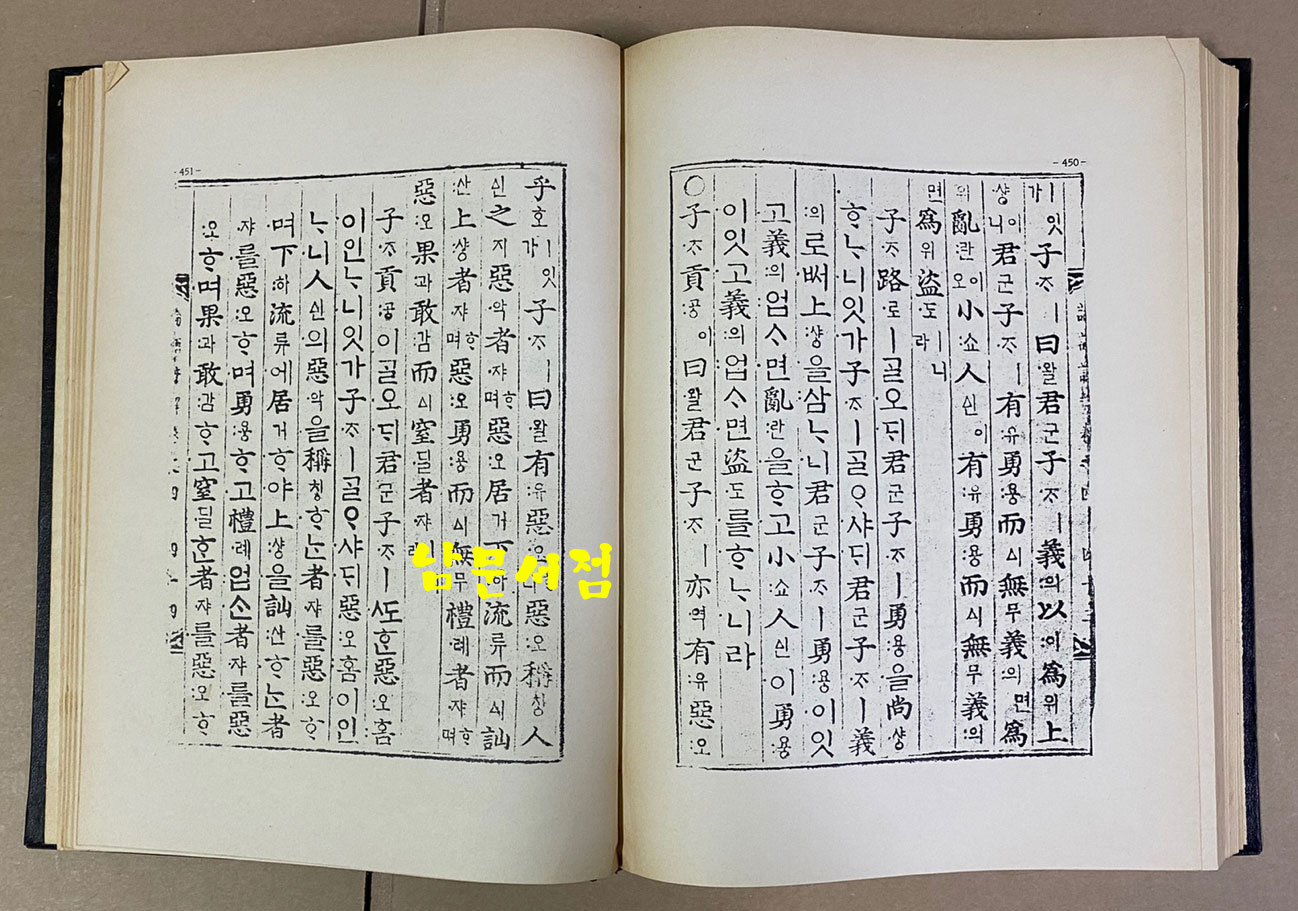 - 450 -
ㅣ잇가子ᄌᆞㅣ曰왈君군子ᄌᆞㅣ義의以이爲위上
샹이니君군子ᄌᆞㅣ有유勇용而ᅀᅵ無무義의면爲
위亂란이오小쇼人ᅀᅵᆫ이有유勇용而ᅀᅵ無무義의
면爲위盜도ㅣ니라
子ᄌᆞ路로ㅣᄀᆞᆯ오ᄃᆡ君군子ᄌᆞㅣ勇용을尚샹
ᄒᆞᄂᆞ니잇가子ᄌᆞㅣᄀᆞᆯᄋᆞ샤ᄃᆡ君군子ᄌᆞㅣ義
의로ᄡᅥ上샹을삼ᄂᆞ니君군子ᄌᆞㅣ勇용이잇
고義의업스면亂란을ᄒᆞ고小쇼人ᅀᅵᆫ이勇용
이잇고義의업스면盜도를ᄒᆞᄂᆞ니라
○子ᄌᆞ貢공이曰왈君군子ᄌᆞㅣ亦역有유惡오
- 451 -
乎호ㅣ잇가子ᄌᆞㅣ曰왈有유惡오니惡오稱칭人
ᅀᅵᆫ之지惡악者쟈ᄒᆞ며惡오居거下하流류而ᅀᅵ訕
산上샹者쟈ᄒᆞ며惡오勇용而ᅀᅵ無무禮례者쟈ᄒᆞ며
惡오果과敢감而ᅀᅵ窒딜者쟈
子ᄌᆞ貢공이ᄀᆞᆯ오ᄃᆡ君군子ᄌᆞㅣᄯᅩᄒᆞᆫ惡오홈
이인ᄂᆞ니잇가子ᄌᆞㅣᄀᆞᆯᄋᆞ샤ᄃᆡ惡오홈이인
ᄂᆞ니人ᅀᅵᆫ의惡악을稱칭ᄒᆞᄂᆞᆫ者쟈를惡오ᄒᆞ
며下하流류에居거ᄒᆞ야上샹을訕산ᄒᆞᄂᆞᆫ者
쟈를惡오ᄒᆞ며勇용ᄒᆞ고禮례업슨者쟈를惡
오ᄒᆞ며果과敢감ᄒᆞ고窒딜ᄒᆞᆫ者쟈를惡오ᄒᆞ
남문서점